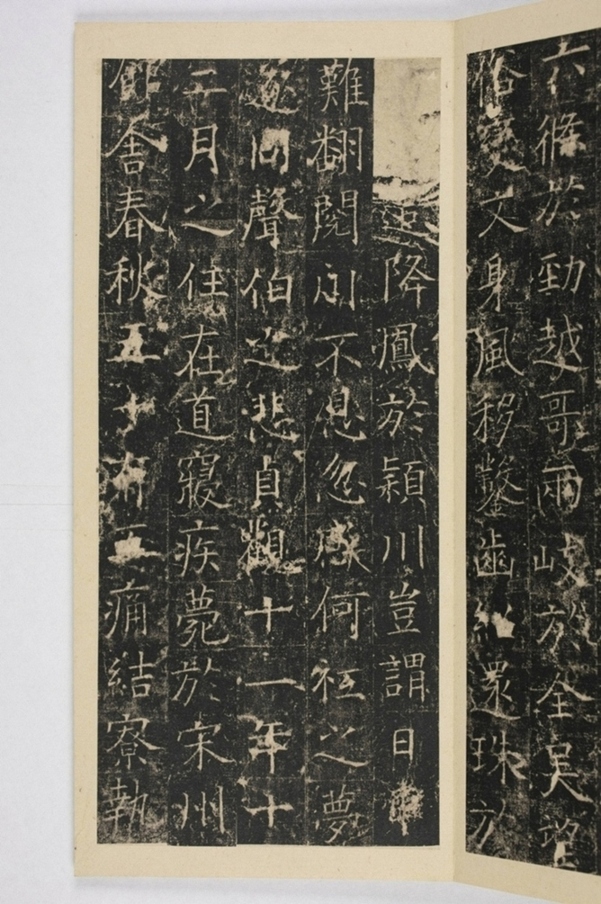 六條於勁越哥兩岐於全吴
俗變文身風移鑿齒還珠方
迹降鳳於潁川豈謂日
難翻閲川不息忽感何祇之夢
逐同聲伯之悲貞觀十一年十
二月之任在道寢疾薨於宋州
館舍春秋五十有五痛結寮執